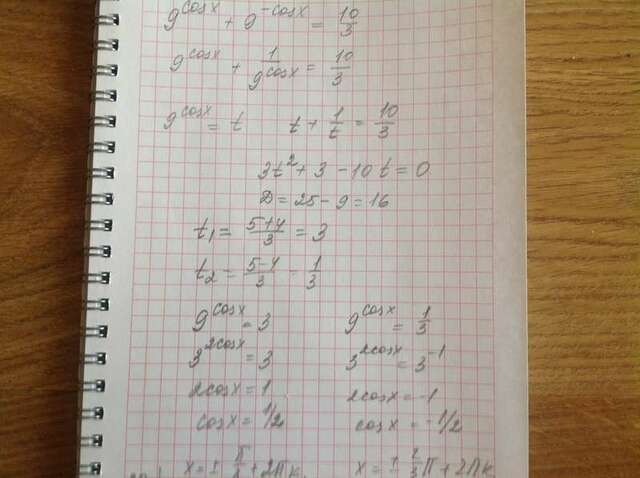 9^cosx + 9^-cosx = 10/3
9^cosx + 1/9^cosx = 10/3
9^cosx = t t + 1/t = 10/3
3t² + 3 - 10t = 0
D = 25 - 9 = 16
t₁ = (5+4)/3 = 3
t₂ = (5-4)/3 = 1/3
9^cosx = 3 9^cosx = 1/3
3^2cosx = 3 3^2cosx = 3^-1
2cosx = 1 2cosx = -1
cosx = 1/2 cosx = -1/2
x = ± π/3 + 2πk x = ± 2/3 π + 2πk